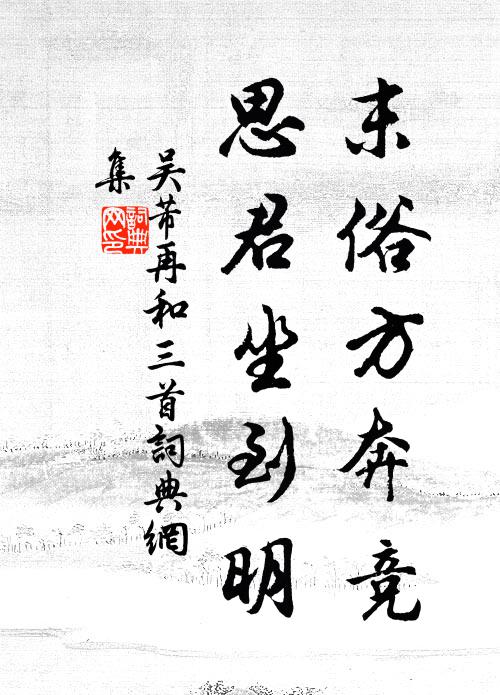 末俗方奔竞
思君坐到明
吴芾再和三首詞典網
集
詞典网印